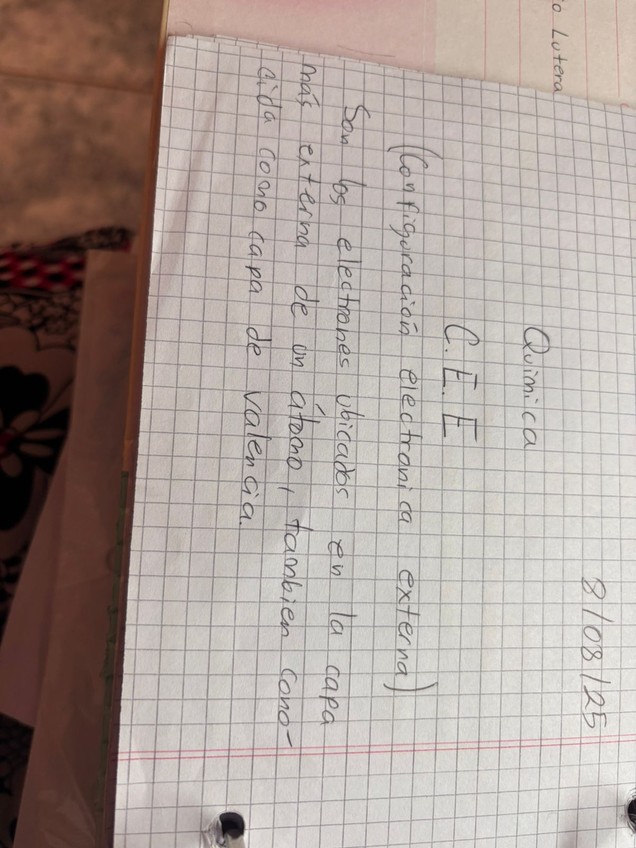 io Lutera
8/08/25
Quimica
C.E.E
(Configuración electronica externa)
Son los electrones ubicados en la capa
más externa de un átomo, tambien cono-
cida como capa de valencia.